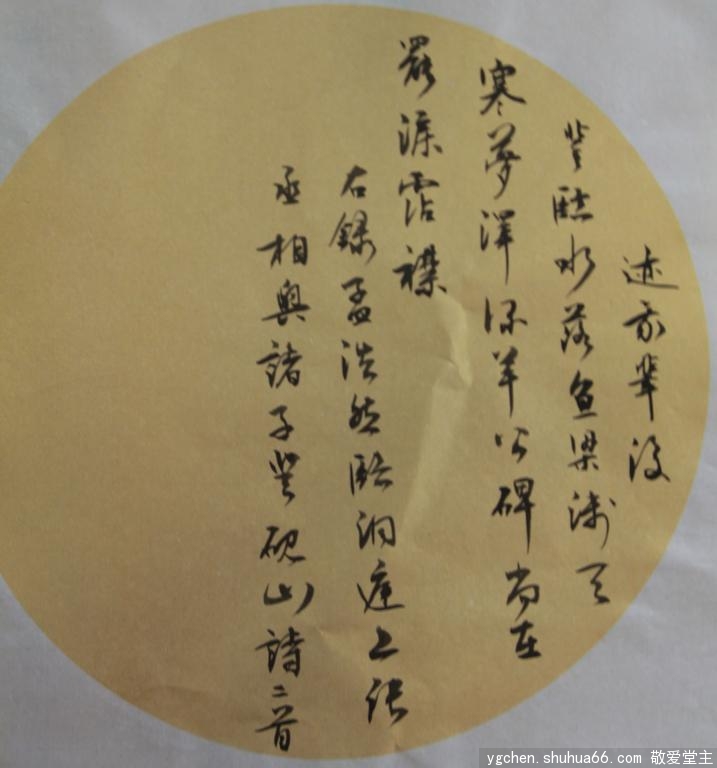 迹我輩復
登臨水落魚梁淺天
寒夢澤深羊公碑尚在
罷淚霑襟
右錄孟浩然臨洞庭上張
丞相與諸子登硯山詩二首
ygchen.shuhua66.com 敬爱堂主